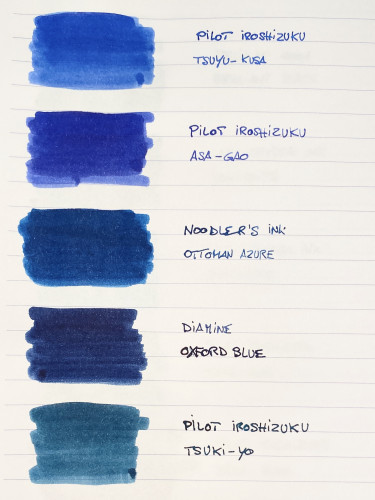 PILOT IROSHIZUKU
TSUYU-KUSA
PILOT IROSHIZUKU
ASA-GAO
NOODLER'S INK
OTTOMAN AZURE
DIAMINE
OXFORD BLUE
PILOT IROSHIZUKU
TSUKI-YO